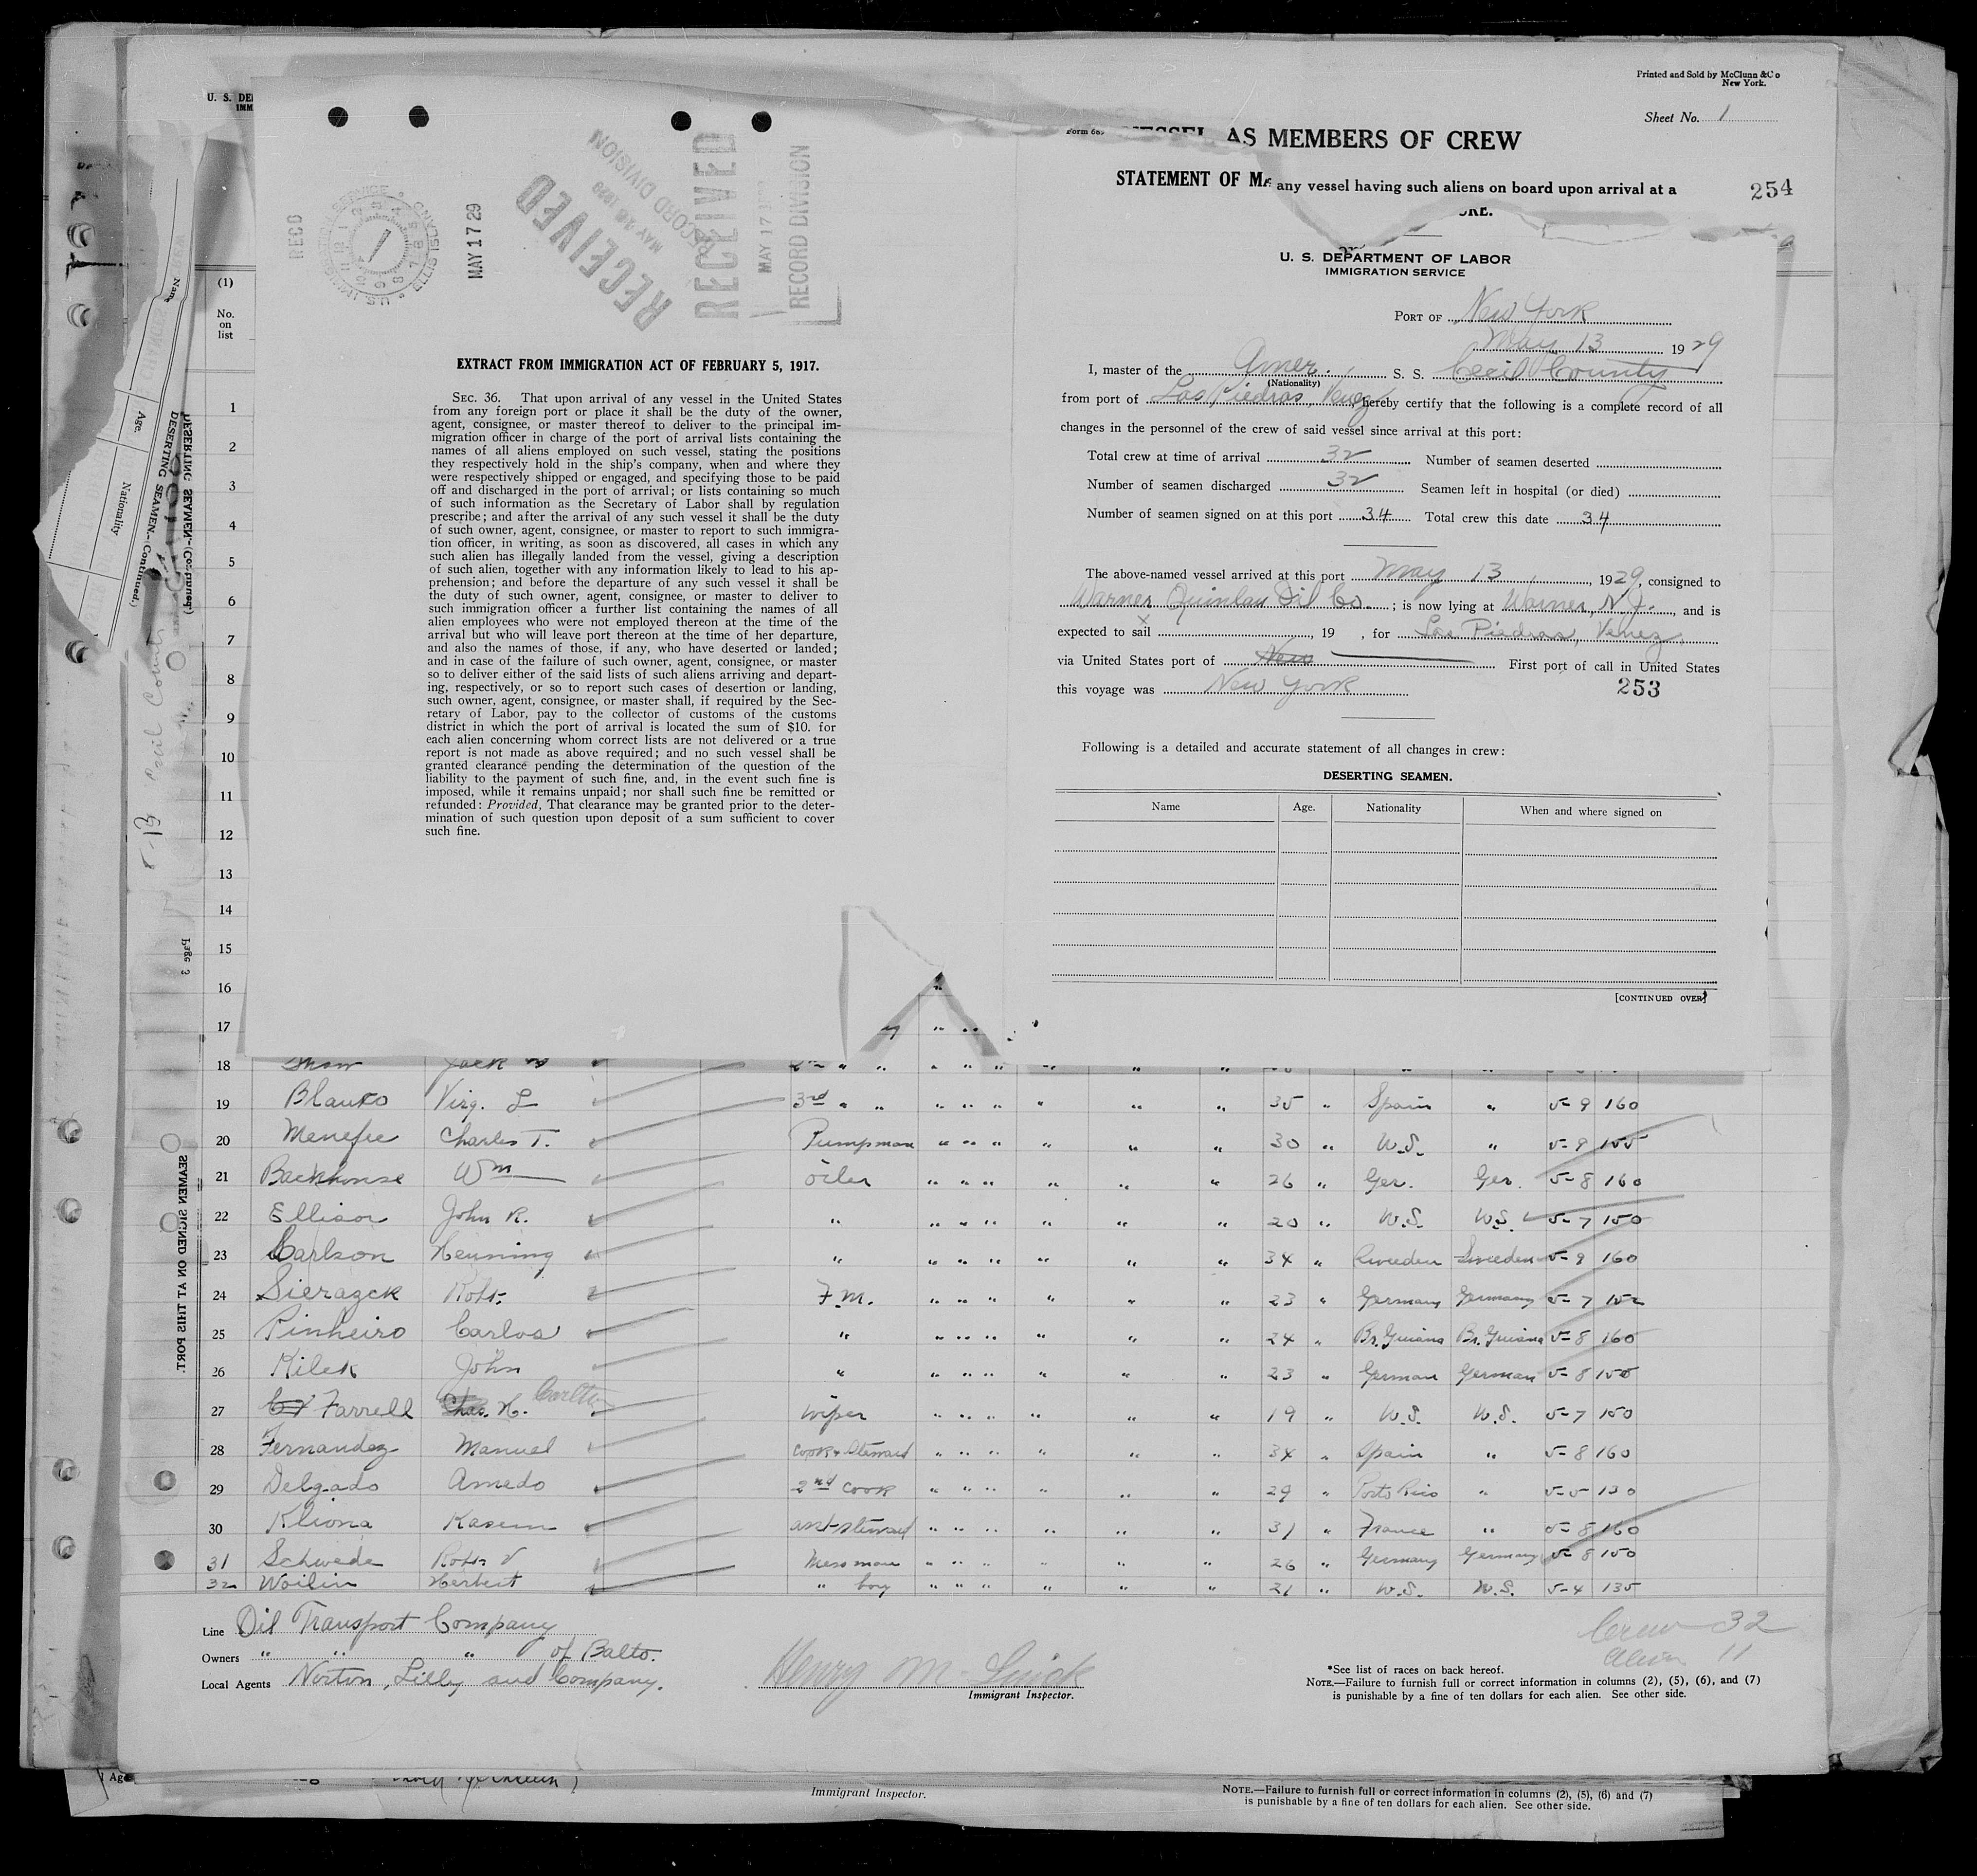 Printed and Sold by McClunn & Co
New York.
Sheet No. 1
U. S. DE
IMM
Form 689
VESSEL AS MEMBERS OF CREW
STATEMENT OF MA any vessel having such aliens on board upon arrival at a
254
REC'D
U.S. IMM. SERVICE ELLIS ISLAND
MAY 17 29
RECEIVED
RECORD DIVISION
RECEIVED
MAY 17
RECORD DIVISION
EXTRACT FROM IMMIGRATION ACT OF FEBRUARY 5, 1917.
SEC. 36. That upon arrival of any vessel in the United States
from any foreign port or place it shall be the duty of the owner,
agent, consignee, or master thereof to deliver to the principal im-
migration officer in charge of the port of arrival lists containing the
names of all aliens employed on such vessel, stating the positions
they respectively hold in the ship's company, when and where they
were respectively shipped or engaged, and specifying those to be paid
off and discharged in the port of arrival; or lists containing so much
of such information as the Secretary of Labor shall by regulation
prescribe; and after the arrival of any such vessel it shall be the duty
of such owner, agent, consignee, or master to report to such immigra-
tion officer, in writing, as soon as discovered, all cases in which any
such alien has illegally landed from the vessel, giving a description
of such alien, together with any information likely to lead to his ap-
prehension; and before the departure of any such vessel it shall be
the duty of such owner, agent, consignee, or master to deliver to
such immigration officer a further list containing the names of all
alien employees who were not employed thereon at the time of the
arrival but who will leave port thereon at the time of her departure,
and also the names of those, if any, who have deserted or landed;
and in case of the failure of such owner, agent, consignee, or master
so to deliver either of the said lists of such aliens arriving and depart-
ing, respectively, or so to report such cases of desertion or landing,
such owner, agent, consignee, or master shall, if required by the Sec-
retary of Labor, pay to the collector of customs of the customs
district in which the port of arrival is located the sum of $10. for
each alien concerning whom correct lists are not delivered or a true
report is not made as above required; and no such vessel shall be
granted clearance pending the determination of the question of the
liability to the payment of such fine, and, in the event such fine is
imposed, while it remains unpaid; nor shall such fine be remitted or
refunded: Provided, That clearance may be granted prior to the deter-
mination of such question upon deposit of a sum sufficient to cover
such fine.
U. S. DEPARTMENT OF LABOR
IMMIGRATION SERVICE
PORT OF New York
May 13 1929
I, master of the Amer. S. S. Cecil County
(Nationality)
from port of Las Piedras, Venez hereby certify that the following is a complete record of all
changes in the personnel of the crew of said vessel since arrival at this port:
Total crew at time of arrival 32 Number of seamen deserted
Number of seamen discharged 32 Seamen left in hospital (or died)
Number of seamen signed on at this port 34 Total crew this date 34
The above-named vessel arrived at this port May 13, 1929, consigned to
Warner Quinlan Oil Co. ; is now lying at Warner, N. J., and is
expected to sail , 19 , for Las Piedras, Venez.
via United States port of New First port of call in United States
this voyage was New York
253
Following is a detailed and accurate statement of all changes in crew:
DESERTING SEAMEN.
Name Age. Nationality When and where signed on
[CONTINUED OVER]
Name Age. Nationality
DESERTING SEAMEN-(Continued.)
DESERTING SEAMEN-(Continued)
Page 3
SEAMEN SIGNED ON AT THIS PORT.
(1)
No.
on
list
1
2
3
4
5
6
7
8
9
10
11
12
13
14
15
16
17
18 Shaw Jack
19 Blanco Virg. L 3rd " " " " " " " " 35 " Spain " 5-9 160
20 Menefee Charles T. Pumpman " " " " " " 30 " U.S. " 5-9 155
21 Backhouse Wm Oiler " " " " " " 26 " Ger. Ger. 5-8 160
22 Ellison John R. " " " " " " " 20 " U.S. U.S. 5-7 150
23 Carlson Henning " " " " " " " 34 " Sweden Sweden 5-9 160
24 Sierazck Robt. F.M. " " " " " " 23 " Germany Germany 5-7 152
25 Pinheiro Carlos " " " " " " " 24 " Br. Guiana Br. Guiana 5-8 160
26 Kilek John " " " " " " " 23 " German German 5-8 155
27 Farrell Chas. H. Carlton Wiper " " " " " " 19 " U.S. U.S. 5-7 150
28 Fernandez Manuel Cook & Steward " " " " " " 34 " Spain " 5-8 160
29 Delgado Amedo 2nd Cook " " " " " " 29 " Porto Rico " 5-5 130
30 Kliona Kasem " " " " " " 31 " France " 5-8 160
31 Schwede Robt V Messman " " " " " " 26 " Germany Germany 5-8 150
32 Woilin Herbert " boy " " " " " " 21 " U.S. U.S. 5-4 135
Line Oil Transport Company
Owners " " " of Balto.
Local Agents Norton, Lilly and Company.
Henry M.
Immigrant Inspector.
Crew 32
Alien 11
*See list of races on back hereof.
NOTE.—Failure to furnish full or correct information in columns (2), (5), (6), and (7)
is punishable by a fine of ten dollars for each alien. See other side.
Immigrant Inspector.
NOTE.—Failure to furnish full or correct information in columns (2), (5), (6) and (7)
is punishable by a fine of ten dollars for each alien. See other side.